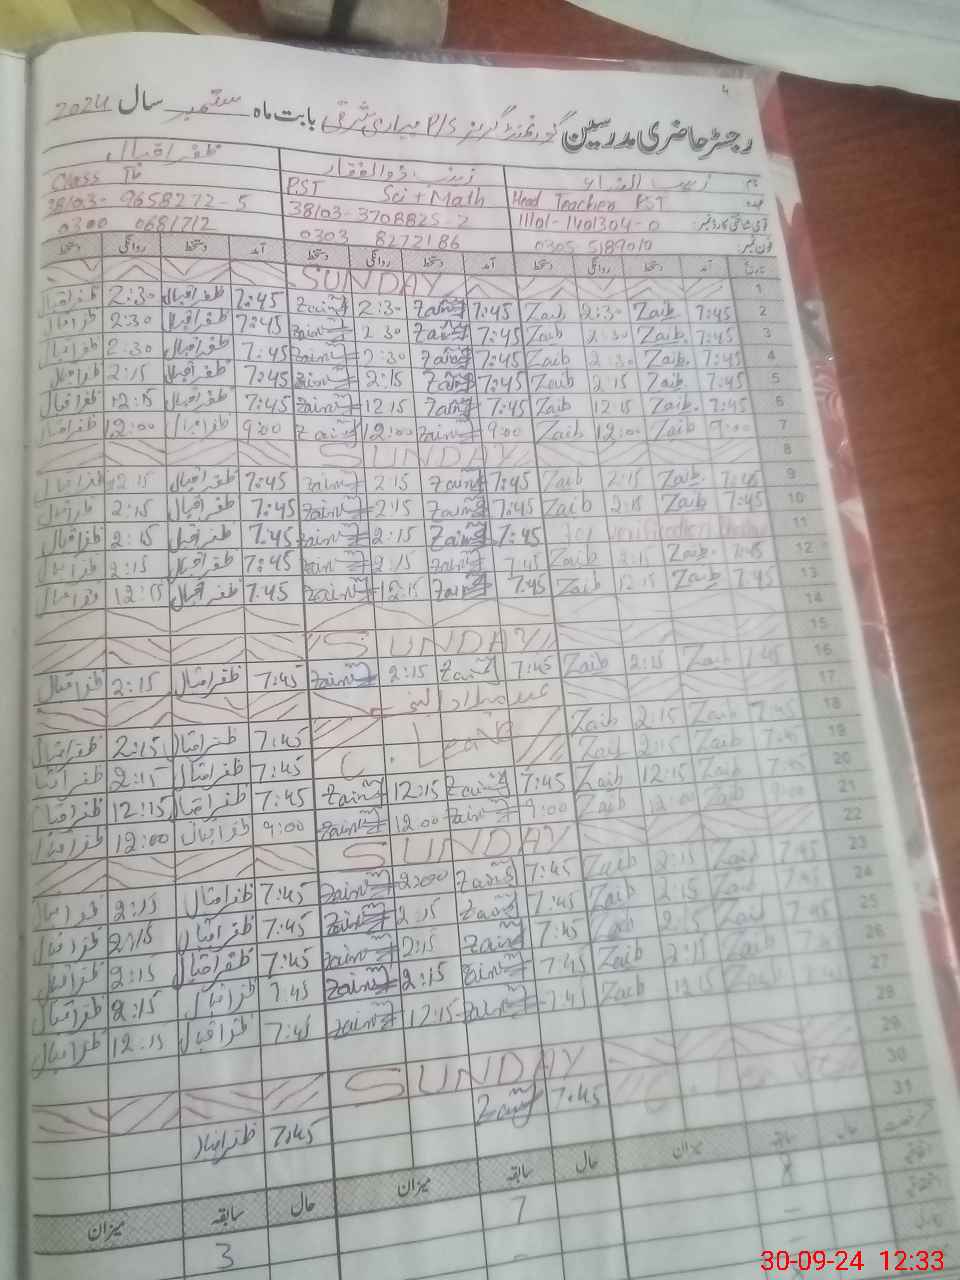 4
رجسٹر حاضری مدرسین گورنمنٹ گرلز P/S میاری شرقی بابت ماہ ستمبر سال 2024
نام زیب النساء زینب ذوالفقار ظفر اقبال
عہدہ Head Teacher PST PST Sci + Math Class IV
شناختی کارڈ نمبر: 11101-1401304-0 38103-3708825-2 38103-9658272-5
فون نمبر: 0305 5189010 0303 8272186 0300 0681712
تاریخ آمد دستخط روانگی دستخط آمد دستخط روانگی دستخط آمد دستخط روانگی دستخط
1 SUNDAY
2 7:45 Zaib 2:30 Zaib 7:45 Zainab 2:30 Zainab 7:45 ظفر اقبال 2:30 ظفر اقبال
3 7:45 Zaib 2:30 Zaib 7:45 Zainab 2:30 Zainab 7:45 ظفر اقبال 2:30 ظفر اقبال
4 7:45 Zaib 2:30 Zaib 7:45 Zainab 2:30 Zainab 7:45 ظفر اقبال 2:30 ظفر اقبال
5 7:45 Zaib 2:15 Zaib 7:45 Zainab 2:15 Zainab 7:45 ظفر اقبال 2:15 ظفر اقبال
6 7:45 Zaib 12:15 Zaib 7:45 Zainab 12:15 Zainab 7:45 ظفر اقبال 12:15 ظفر اقبال
7 9:00 Zaib 12:00 Zaib 9:00 Zainab 12:00 Zainab 9:00 ظفر اقبال 12:00 ظفر اقبال
8 SUNDAY
9 7:45 Zaib 2:15 Zaib 7:45 Zainab 2:15 Zainab 7:45 ظفر اقبال 2:15 ظفر اقبال
10 7:45 Zaib 2:15 Zaib 7:45 Zainab 2:15 Zainab 7:45 ظفر اقبال 2:15 ظفر اقبال
11 7:45 Zainab 2:15 Zainab 7:45 ظفر اقبال 2:15 ظفر اقبال
12 7:45 Zaib 2:15 Zaib 7:45 Zainab 2:15 Zainab 7:45 ظفر اقبال 2:15 ظفر اقبال
13 7:45 Zaib 12:15 Zaib 7:45 Zainab 12:15 Zainab 7:45 ظفر اقبال 12:15 ظفر اقبال
14
15 SUNDAY
16 7:45 Zaib 2:15 Zaib 7:45 Zainab 2:15 Zainab 7:45 ظفر اقبال 2:15 ظفر اقبال
17 عید میلاد النبی
18 7:45 Zaib 2:15 Zaib C. Leave 7:45 ظفر اقبال 2:15 ظفر اقبال
19 7:45 Zaib 2:15 Zaib 7:45 ظفر اقبال 2:15 ظفر اقبال
20 7:45 Zaib 12:15 Zaib 7:45 Zainab 12:15 Zainab 7:45 ظفر اقبال 12:15 ظفر اقبال
21 9:00 Zaib 12:00 Zaib 9:00 Zainab 12:00 Zainab 9:00 ظفر اقبال 12:00 ظفر اقبال
22 SUNDAY
23 7:45 Zaib 2:15 Zaib 7:45 Zainab 2:00 Zainab 7:45 ظفر اقبال 2:15 ظفر اقبال
24 Zaib 2:15 Zaib 7:45 Zainab 2:15 Zainab 7:45 ظفر اقبال 2:15 ظفر اقبال
25 7:45 Zaib 2:15 Zaib 7:45 Zainab 2:15 Zainab 7:45 ظفر اقبال 2:15 ظفر اقبال
26 Zaib 2:15 Zaib 7:45 Zainab 2:15 Zainab 7:45 ظفر اقبال 2:15 ظفر اقبال
27 Zaib 12:15 Zaib 7:45 Zainab 12:15 Zainab 7:45 ظفر اقبال 12:15 ظفر اقبال
28
29 SUNDAY
30 C. Leave 7:45 Zainab 7:45 ظفر اقبال
31
حال سابقہ میزان حال سابقہ میزان حال سابقہ میزان
8 7 3
30-09-24 12:33